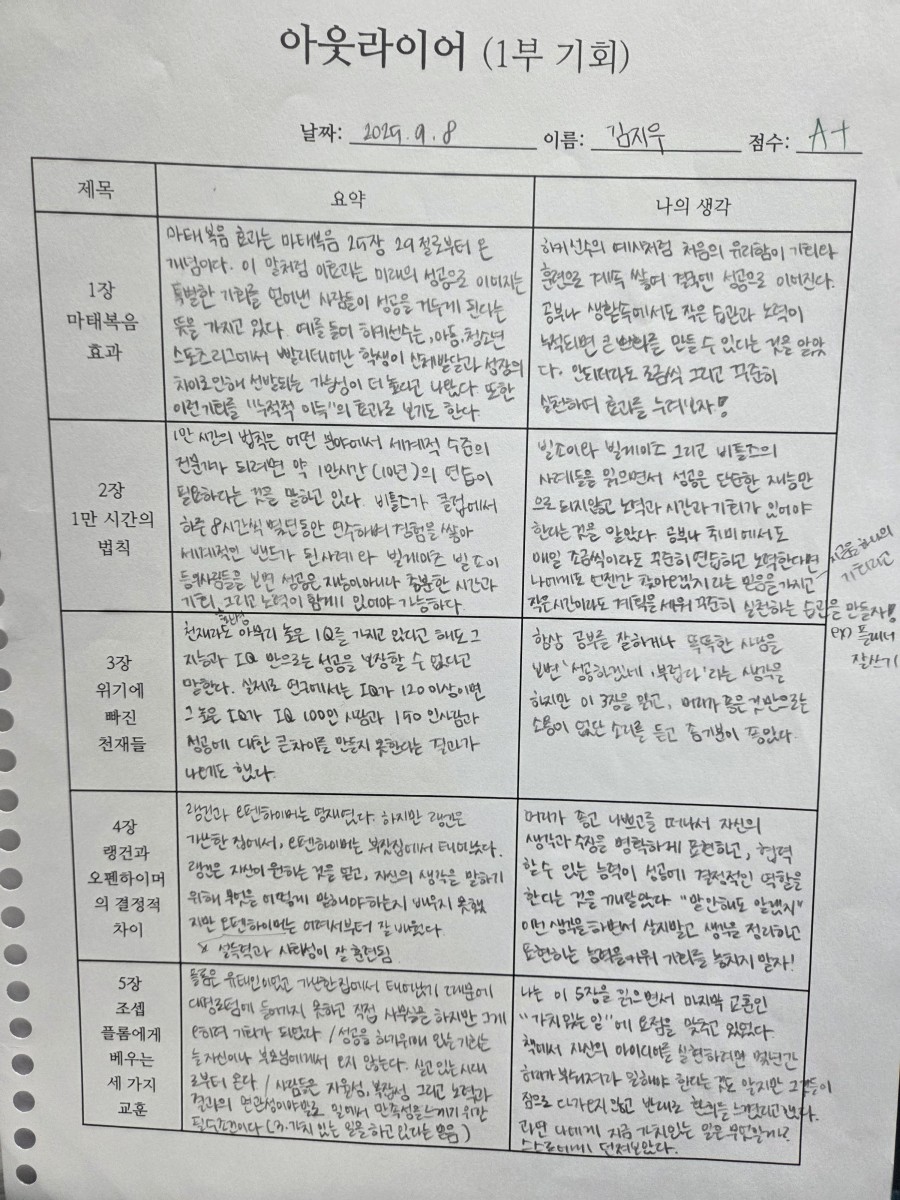 아웃라이어 (1부 기회)
날짜: 2025. 9. 8 이름: 김지우 점수: A+
제목
요약
나의 생각
1장
마태복음
효과
마태복음 효과는 마태복음 25장 29절로부터 온
개념이다. 이 말처럼 이효과는 미래의 성공으로 이어지는
특별한 기회를 얻어낸 사람들이 성공을 거두게 된다는
뜻을 가지고 있다. 예를들어 하키선수는, 아동, 청소년
스포츠리그에서 빨리태어난 학생이 신체발달과 성장의
차이로인해 선발되는 가능성이 더 높다고 나왔다. 또한
이런기회를 "누적적 이득"의 효과로 보기도 한다.
하키선수의 예시처럼 처음의 유리함이 기회와
훈련으로 계속 쌓여 결국엔 성공으로 이어진다.
공부나 생활속에서도 작은 습관과 노력이
누적되면 큰 변화를 만들 수 있다는 것을 알았
다. 안되더라도 조금씩 그리고 꾸준히
실천하며 효과를 누려보자!
2장
1만 시간의
법칙
1만 시간의 법칙은 어떤 분야에서 세계적 수준의
전문가가 되려면 약 1만시간(10년)의 연습이
필요하다는 것을 말하고 있다. 비틀즈가 클럽에서
하루 8시간씩 몇년동안 연주하며 경험을 쌓아
세계적인 밴드가 된사례와 빌게이츠 빌조이
등의사람들을 보면 성공은 재능이아니라 충분한 시간과
기회, 그리고 노력이 함께 있어야 가능하다.
빌조이와 빌게이츠 그리고 비틀즈의
사례들을 읽으면서 성공은 단순한 재능만
으로 되지않고 노력과 시간과 기회가 있어야
한다는 것을 알았다. 공부나 취미에서도
매일 조금씩이라도 꾸준히 연습하고 노력한다면
나에게도 언젠간 찾아오겠지 라는 믿음을 가지고
작은시간이라도 계획을 세워 꾸준히 실천하는 습관을 만들자!
지금을 하나의
기회라고
ex) 플래너
잘쓰기
3장
위기에
빠진
천재들
천재라도 아무리 높은 IQ를 가지고 있다고 해도 그
지능과 IQ 만으로는 성공을 보장할 수 없다고
말한다. 실제로 연구에서는 IQ가 120 이상이면
그 높은 IQ가 IQ 100인 사람과 150 인사람과
성공에 대한 큰차이를 만들지 못한다는 결과가
나에도 했다.
항상 공부를 잘하거나 똑똑한 사람을
보면 '성공하겠네, 부럽다' 라는 생각을
하지만 이 3장을 읽고, 머리가 좋은 것만으로는
소용이 없단 소리를 듣고 좀 기분이 좋았다.
4장
랭건과
오펜하이머
의 결정적
차이
랭건과 오펜하이머는 영재였다. 하지만 랭건은
가난한 집에서, 오펜하이머는 부잣집에서 태어났다.
랭건은 자신이 원하는 것을 얻고, 자신의 생각을 말하기
위해 무엇을 어떻게 말해야하는지 배우지 못했
지만 오펜하이머는 어려서부터 잘 배웠다.
※ 설득력과 사회성이 잘 훈련됨
머리가 좋고 나쁘고를 떠나서 자신의
생각과 주장을 명확하게 표현하고, 협력
할수 있는 능력이 성공에 결정적인 역할을
한다는 것을 깨달았다. "말안해도 알겠지"
이런 생각을 하면서 살지말고 생각을 정리하고
표현하는 능력을 키워 기회를 놓치지 말자!
5장
조셉
플롬에게
베우는
세 가지
교훈
플롬은 유태인이었고 가난한집에서 태어났기 때문에
대형로펌에 들어가지 못하고 직접 사무실을 하지만 그게
오히려 기회가 되었다 / 성공을 하기위해 있는기회는
늘 자신이나 부모님에게서 오지 않는다. 살고있는시대
로부터 온다 / 사람들은 자율성, 복잡성 그리고 노력과
결과의 연관성이야말로 일에서 만족성을느끼기 위한
필수조건이다 (3. 가치 있는 일을 하고 있다는 믿음)
나는 이 5장을 읽으면서 마지막 교훈인
"가치있는 일"에 초점을 맞추고 있었다.
책에서 자신의 아이디어를 실현하려면 몇년간
허리가 부러져라 일해야 한다는 것도 알지만 그것들이
짐으로 다가오지 않고 반대로 환희를 느꼈다고 했다.
과연 나에게 지금 가치있는 일은 무엇일까?
스스로에게 던져보았다.